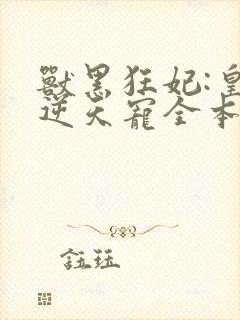 獸黑狂妃:皇
逆天寵全本
鈺珏